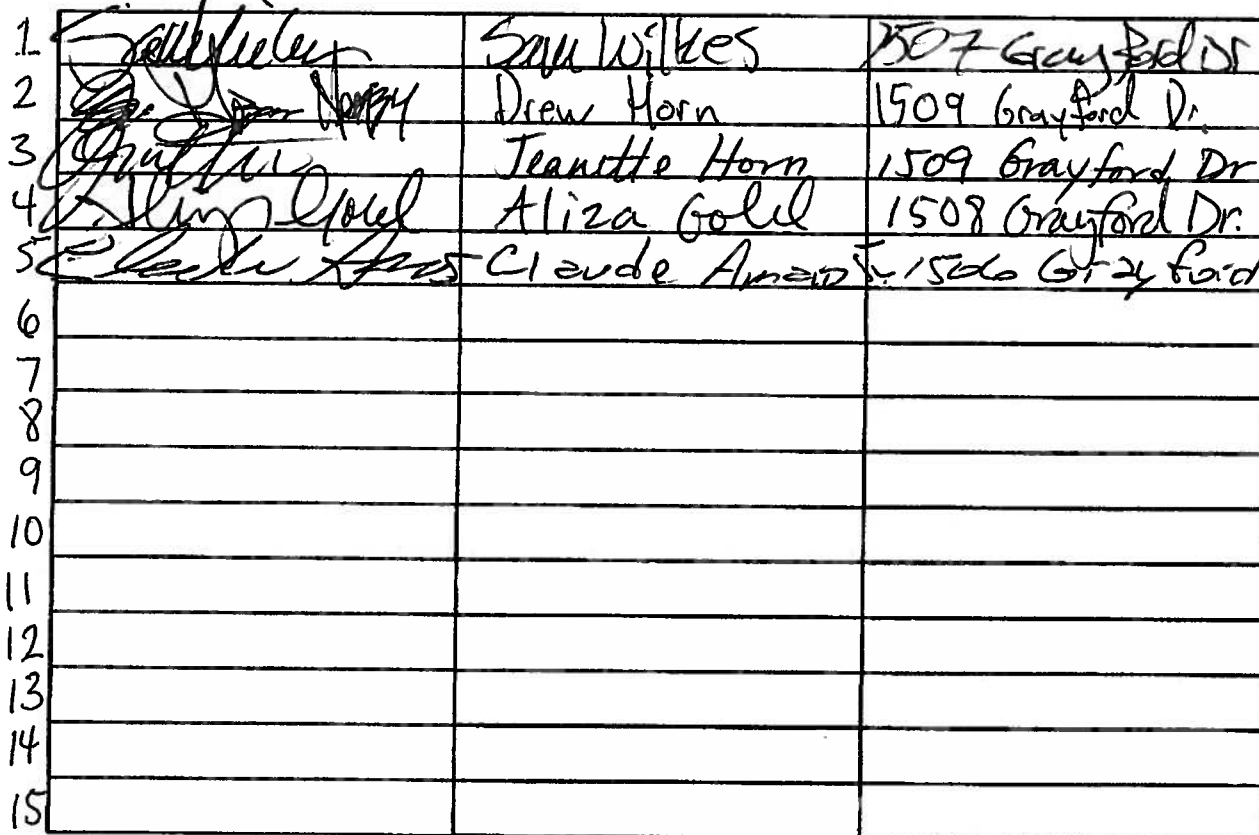 1 Sam Wilkes 1507 Grayford Dr
2 Drew Horn 1509 Grayford Dr.
3 Jeanette Horn 1509 Grayford Dr
4 Aliza Gold Aliza Gold 1508 Grayford Dr.
5 Claude 1506 Grayford
6
7
8
9
10
11
12
13
14
15